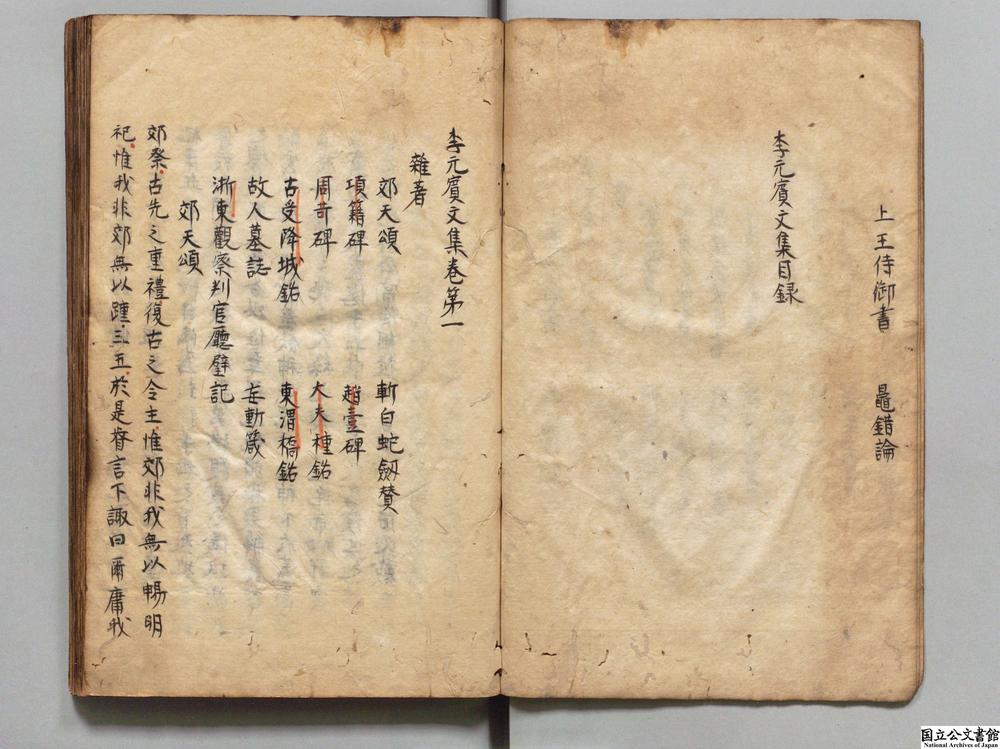 上王侍御書 鼂錯論
李元賓文集目録
李元賓文集卷第一
雜著
郊天頌 斬白蛇劔賛
項籍碑 趙壹碑
周苛碑 大夫種銘
古受降城銘 東渭橋銘
故人墓誌 妄動箴
浙東觀察判官廳壁記
郊天頌
郊祭古先之重禮復古之令主惟郊非我無以暢明
祀惟我非郊無以踵三五於是眷言下諏曰爾庸我
国立公文書館
National Archives of Japan